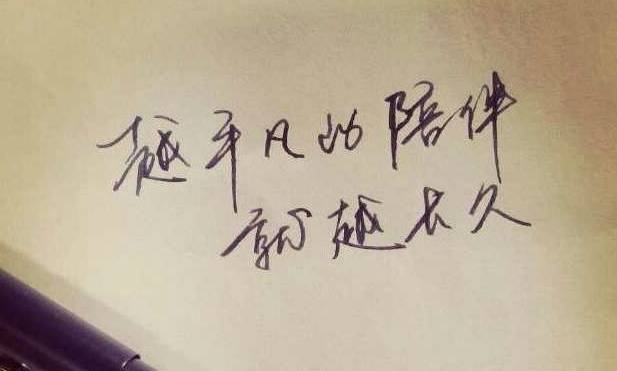 越平凡的陪伴
就越长久